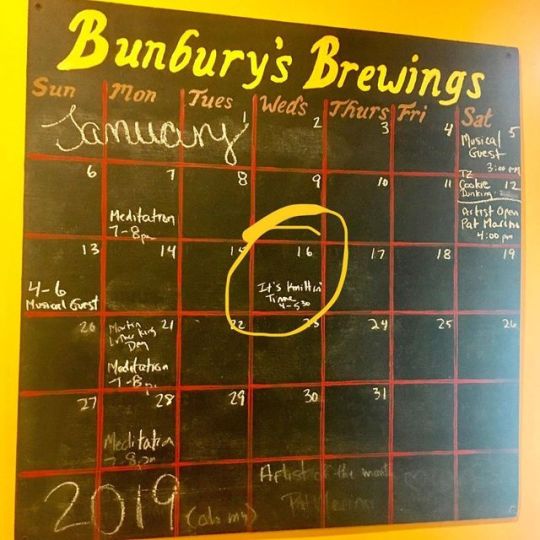 Bunbury's Brewings
Sun Mon Tues Wed's Thurs Fri Sat
January 1 2 3 4 5
Musical
Guest
3:00 pm
6 7 8 9 10 11 12
Meditation
7-8pm
Cookie
Dunking
Artist Open
Pat
4:00 pm
13 14 15 16 17 18 19
4-6
Musical Guest
It's Knittin'
Time
4-5:30
20 21 22 23 24 25 26
Martin
Luther King
Day
Meditation
7-8p
27 28 29 30 31
Meditation
7-8pm
2019
Artist of the month
Pat